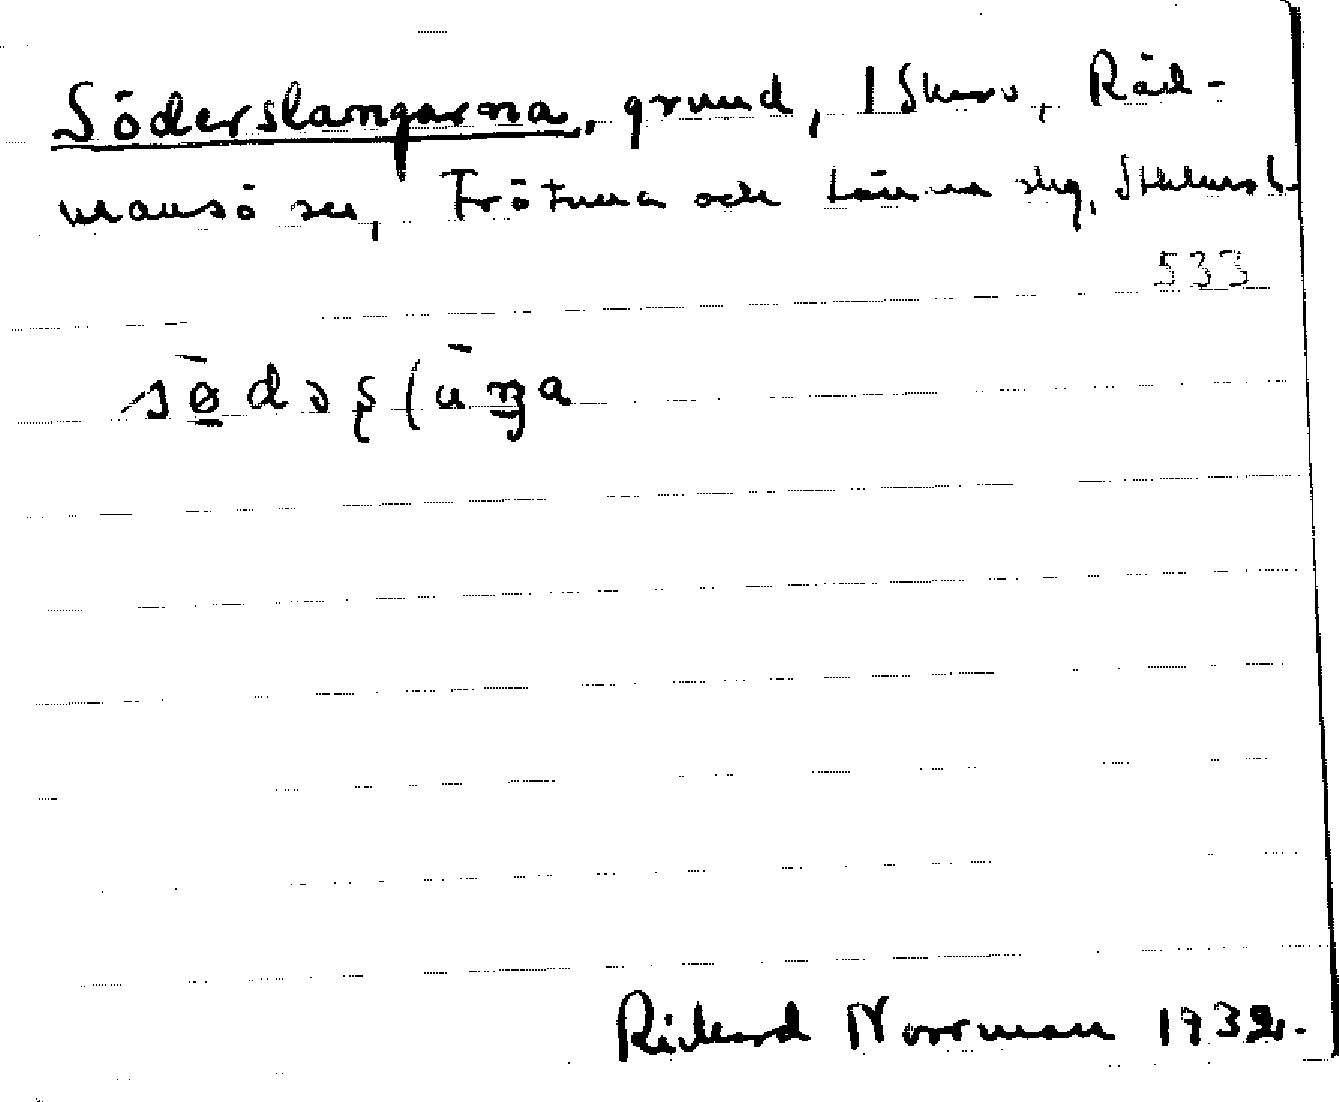 Söderslangarna, grund, I Skärv, Råd-
mansö sn, Frötuna och Länna skg, Sthlms l.
533
Rickard Norrman 1932.